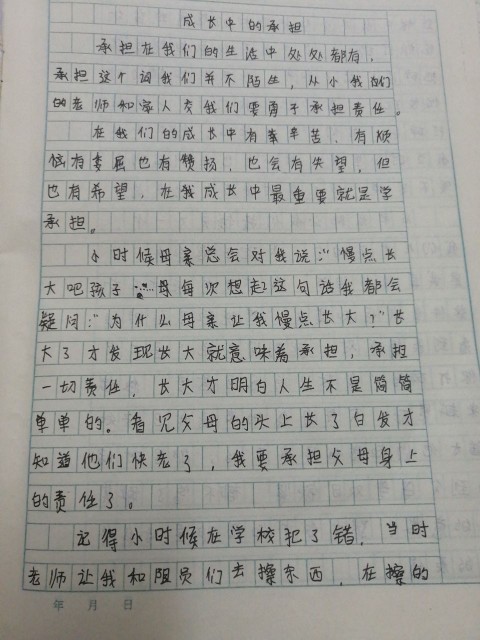 成长中的承担
承担在我们的生活中处处都有，
承担这个词我们并不陌生，从小我们
的老师和家人教我们要勇于承担责任。
在我们的成长中有辛苦，有烦
恼有委屈也有赞扬，也会有失望，但
也有希望，在我成长中最重要就是学
承担。
小时候母亲总会对我说：“慢点长
大吧孩子……母每次想起这句话我都会
疑问：“为什么母亲让我慢点长大？”长
大了才发现长大就意味着承担，承担
一切责任，长大才明白人生不是简简
单单的。看见父母的头上长了白发才
知道他们快老了，我要承担父母身上
的责任了。
记得小时候在学校犯了错，当时
老师让我和阻员们去擦东西，在擦的
年 月 日